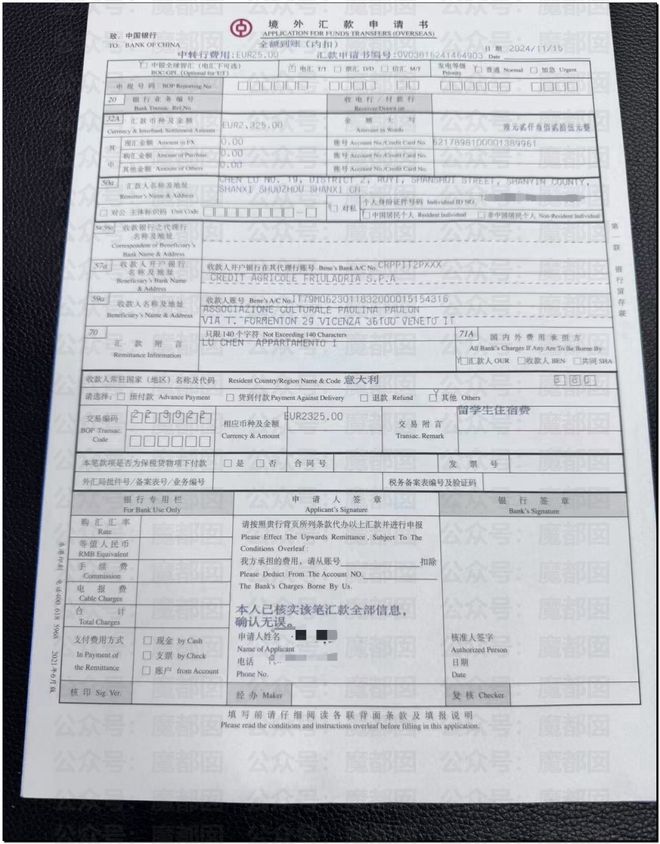 境外汇款申请书
致：中国银行
TO: BANK OF CHINA
APPLICATION FOR FUNDS TRANSFERS (OVERSEAS)
全额到账(内扣)
中转行费用:EUR25.00
汇款申请书编号:
日期 2024/11/15
Date
中银全球智汇（电汇下可选）
BOC-GPI (Optional for T/T)
电汇 T/T 票汇 D/D 信汇 M/T
发电等级
Priority
普通 Normal 加急 Urgent
申报号码 BOP Reporting No.
20
银行业务编号
Bank Transac. Ref. No.
收电行/付款行
Receiver/Drawn on
32A
汇款币种及金额
Currency & Interbank Settlement Amount
EUR2,325.00
金额大写
Amount in Words
欧元贰仟叁佰贰拾伍元整
其中
现汇金额 Amount in FX
0.00
账号 Account No./Credit Card No.
6217898100001389961
购汇金额 Amount of Purchase
0.00
账号 Account No./Credit Card No.
其他金额 Amount of Others
0.00
账号 Account No./Credit Card No.
50a
汇款人名称及地址
Remitter's Name & Address
CHEN LU NO. 19, DISTRICT 2, RUYI, SHANSHUI STREET, SHANYIN COUNTY,
SHANXI SHUOZHOU SHANXI CN
对公 主体标识码 Unit Code
对私
个人身份证件号码 Individual ID NO.
中国居民个人 Resident Individual
非中国居民个人 Non-Resident Individual
收款银行之代理行
名称及地址
Correspondent of Beneficiary's
Bank Name & Address
57a
收款人开户银行
名称及地址
Beneficiary's Bank Name
& Address
收款人开户银行在其代理行账号 Bene's Bank A/C No.
CRPPIT2PXXX
CREDIT AGRICOLE FRIULADRIA S.P.A
59a
收款人名称及地址
Beneficiary's Name & Address
收款人账号 Bene's A/C No.
IT79M0623011832000015154316
ASSOCIAZIONE CULTURALE PAOLINA PAULON
VIA T. FORMENTON 29 VICENZA 36100 VENETO IT
70
汇款附言
Remittance Information
只限140个字符 Not Exceeding 140 Characters
LU CHEN APPARTAMENTO I
71A
国内外费用承担方
All Bank's Charges If Any Are To Be Borne By
汇款人 OUR 收款人 BEN 共同 SHA
收款人常驻国家（地区）名称及代码 Resident Country/Region Name & Code 意大利
380
请选择： 预付款 Advance Payment 货到付款 Payment Against Delivery 退款 Refund 其他 Others
交易编码
BOP Transac.
Code
223022
相应币种及金额
Currency & Amount
EUR2325.00
交易附言
Transac. Remark
留学生住宿费
本笔款项是否为保税货物项下付款 是 否 合同号 发票号
外汇局批件号/备案表号/业务编号
税务备案表编号及验证码
银行专用栏
For Bank Use Only
申请人签章
Applicant's Signature
银行签章
Bank's Signature
购汇汇率
Rate
等值人民币
RMB Equivalent
手续费
Commission
电报费
Cable Charges
合计
Total Charges
支付费用方式
In Payment of
the Remittance
现金 by Cash
支票 by Check
账户 from Account
请按照贵行背页所列条款代办以上汇款并进行申报
Please Effect The Upwards Remittance, Subject To The
Conditions Overleaf:
我方承担的费用，请从账号 扣除
Please Deduct From The Account NO.
The Bank's Charges Borne By Us.
本人已核实该笔汇款全部信息，
确认无误。
申请人姓名
Name of Applicant
电话
Phone No.
核准人签字
Authorized Person
日期
Date
核印 Sig. Ver.
经办 Maker
复核 Checker
填写前请仔细阅读各联背面条款及填报说明
Please read the conditions and instructions overleaf before filling in this application.
第一联 银行留存联
公众号：魔都囡